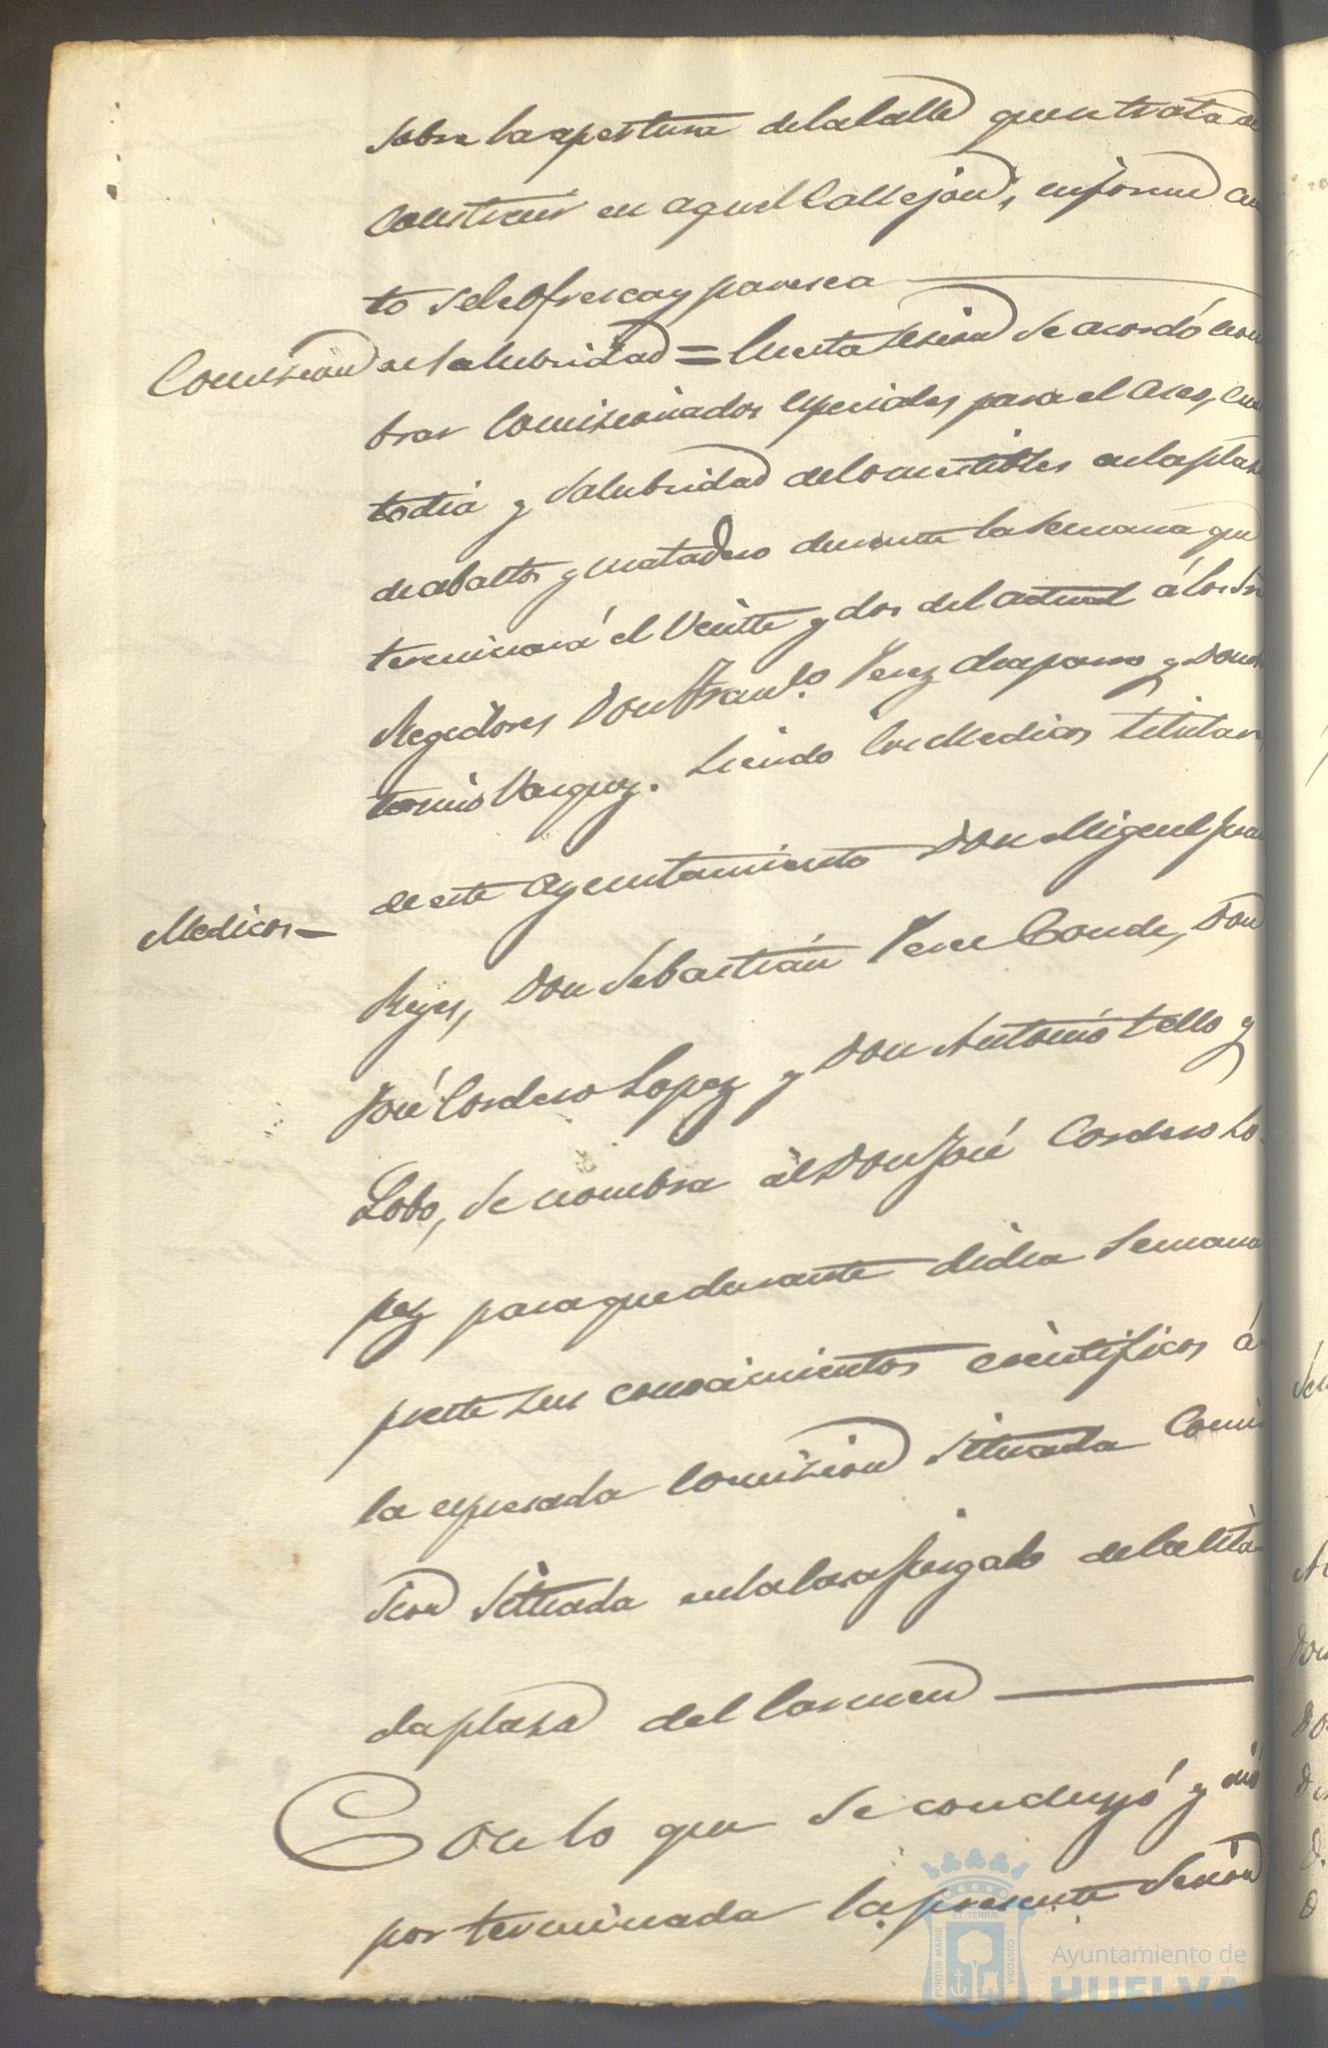 sobre la apertura de la Calle que se trata de
Construir en aquel Callejon, informe cuan
to se le ofresca y paresca
Comision de Salubridad = En esta Sesion se acordó nom
brar Comisionados especiales para el aseo, cus
todia y Salubridad de Comestibles en la plasa
de abastos y matadero durante la semana que
terminará el Veinte y dos del actual á los Sres
Regidores Don Franco. Perez y Don An
tonio Vazquez. Siendo los Medicos titulares
de este Ayuntamiento Don Miguel
Medicos
Reyes, Don Sebastián Conde, Don
José Cordero Lopez y Don Antonio Tello y
Lobo, se nombra al Don José Cordero Lo-
pez para que durante dicha Semana
preste sus conocimientos cientificos á
la espresada Comision Situada Comi
sion Situada en la Casa Juzgado de la Cita
da plasa del Carmen
Con lo que se concluyó y dió
por terminada la presente Sesion
PORTUS MARIS ET TERRAE CUSTODIA
Ayuntamiento de
HUELVA